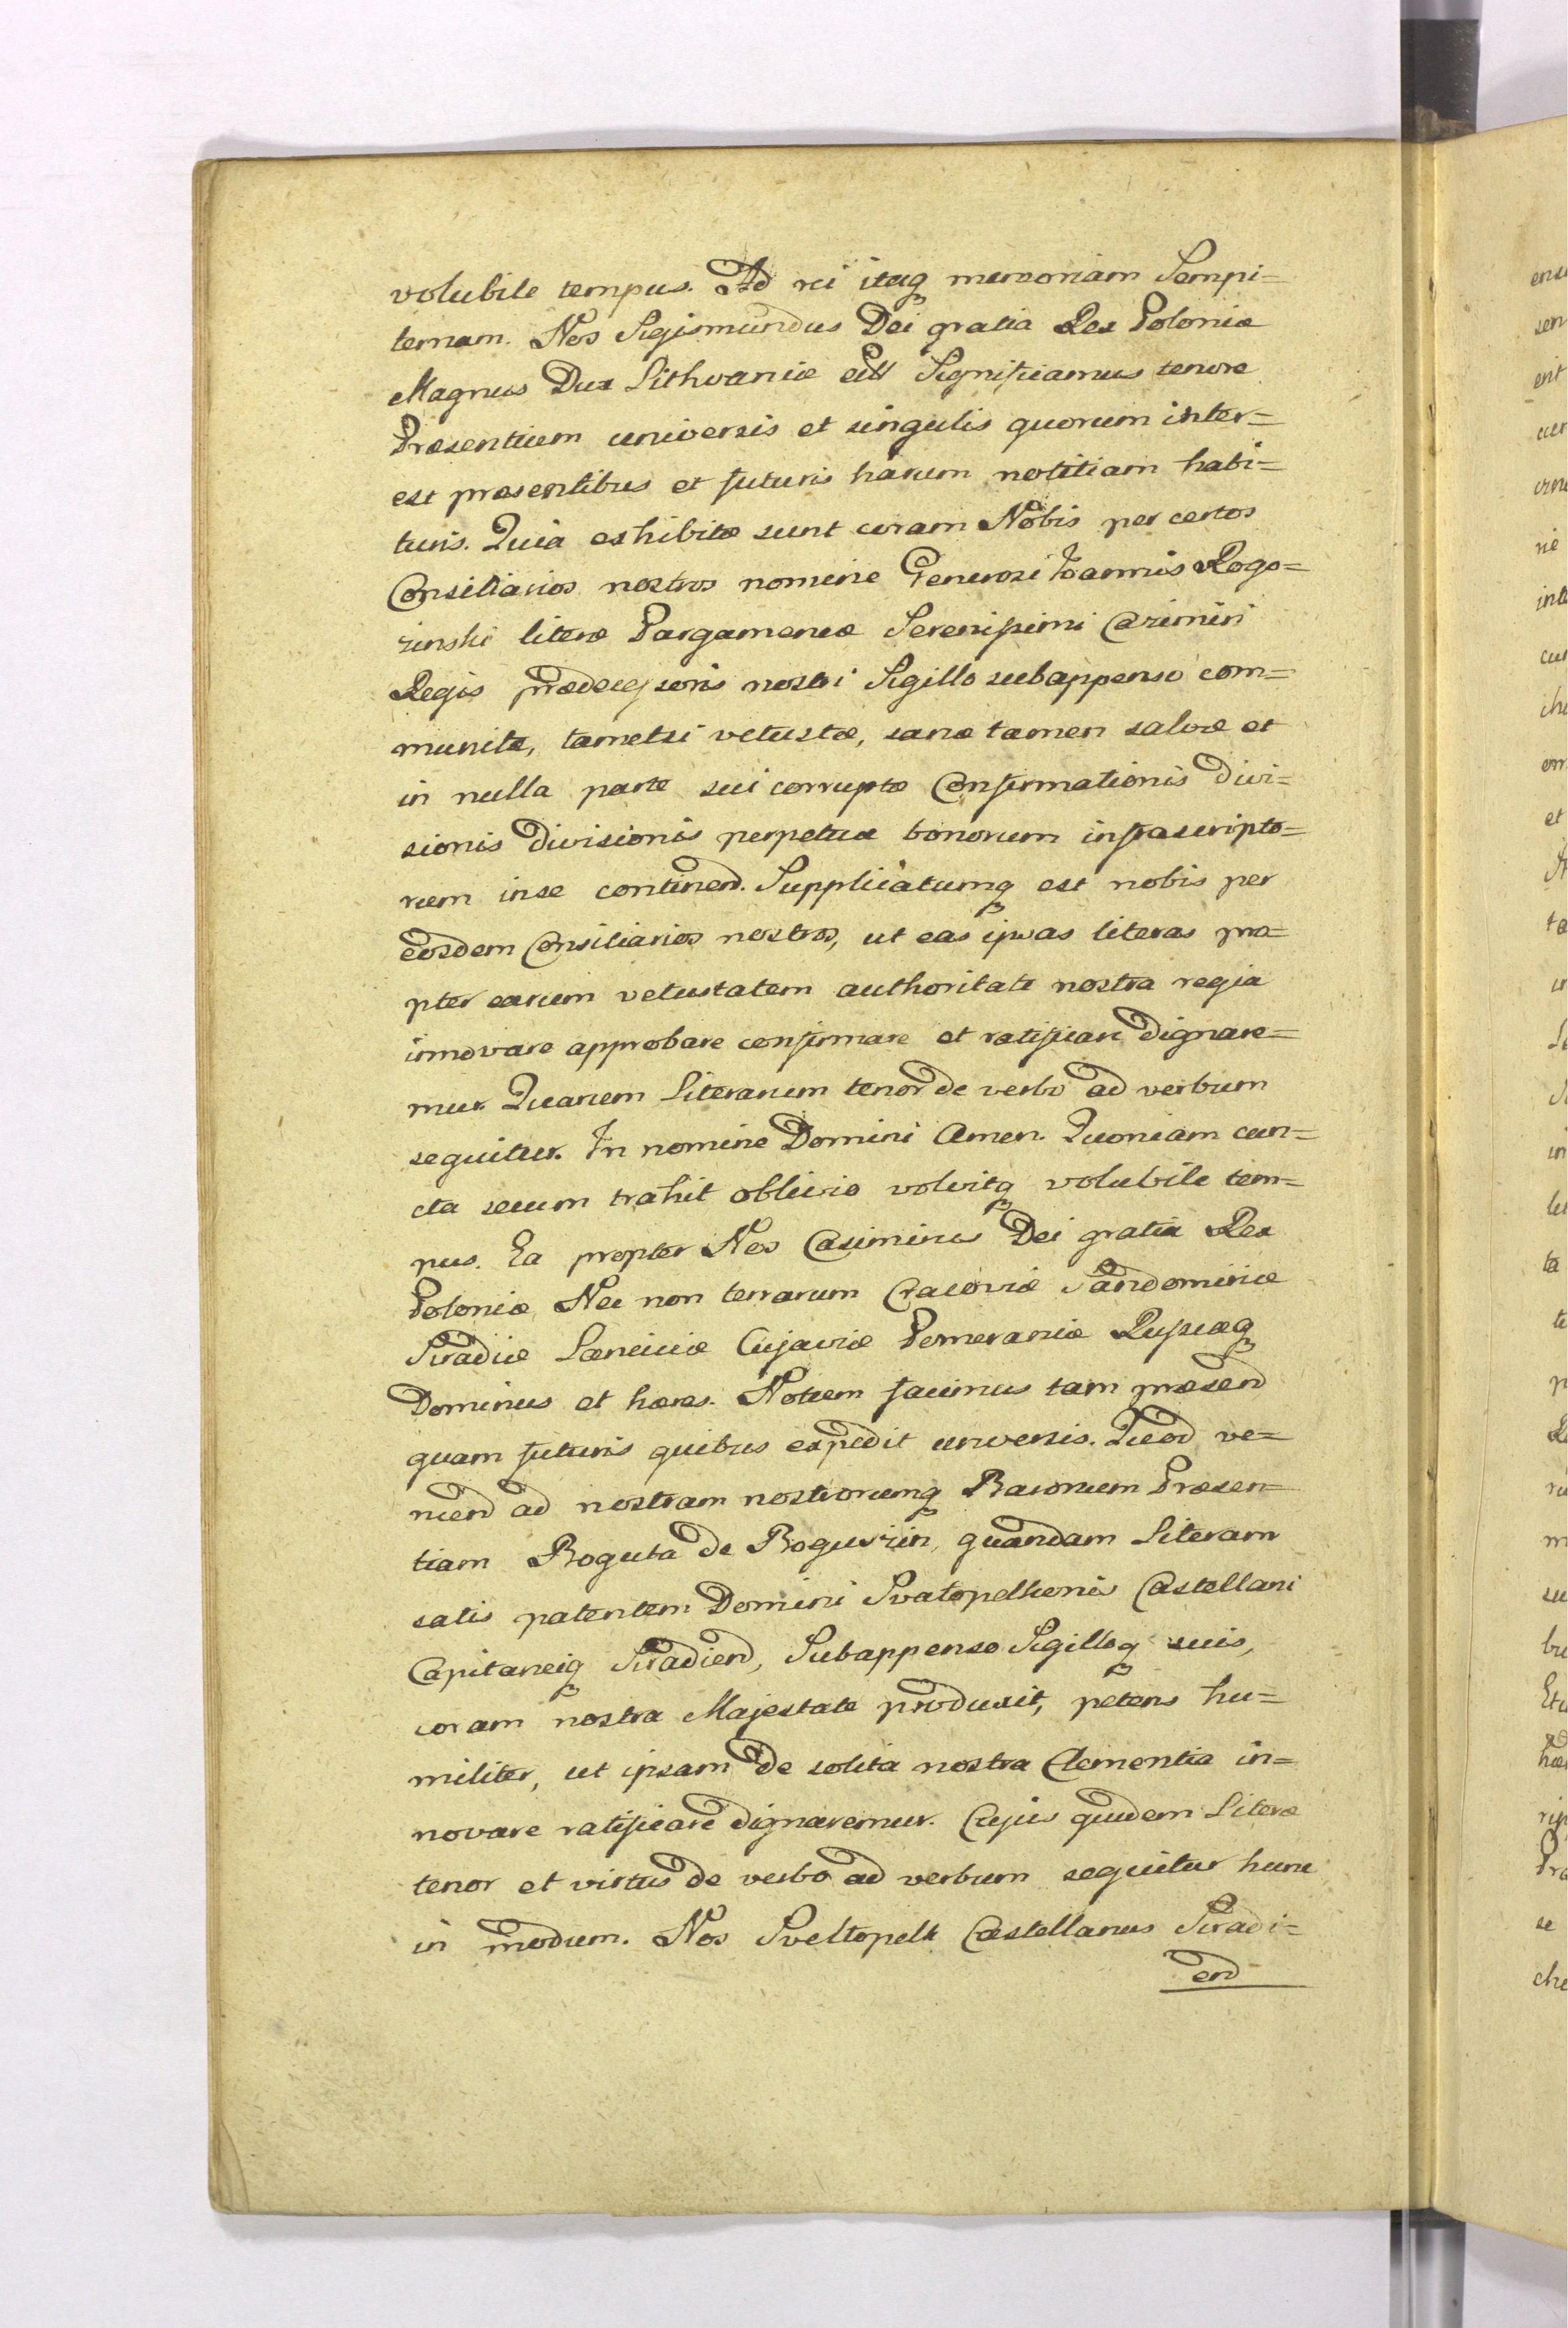 volubile tempus. Ad rei itaq memoriam Sempi=
ternam. Nos Sigismundus Dei gratia Rex Poloniæ
Magnus Dux Lithvaniæ Significamus tenore
Præsentium universis et singulis quorum inter=
est præsentibus et futuris harum notitiam habi=
turis. Quia exhibitæ sunt coram Nobis per certos
Consiliarios nostros nomine Generosi Joannis Rogo=
zinski literæ Pargameneæ Serenissimi Cazimiri
Regis prædecessoris nostri Sigillo subappenso com=
munitæ, tametsi vetustæ, sanæ tamen salvæ et
in nulla parte sui corruptæ Confirmationis divi=
sionis divisionis perpetuæ bonorum infrascripto=
rum in se continend. Supplicatumq est nobis per
eosdem Consiliarios nostros, ut eas ipsas literas pro=
pter earum vetustatem authoritate nostra regia
innovare approbare confirmare et ratificare dignare=
mur. Quarum Literarum tenor de verbo ad verbum
sequitur. In nomine Domini Amen. Quoniam cun=
cta secum trahit oblivio volvitq volubile tem=
pus. Ea propter Nos Casimirus Dei gratia Rex
Poloniæ, Nec non terrarum Cracoviæ Sandomiriæ
Siradiæ Lanciciæ Cujaviæ Pomeraniæ Russiæq
Dominus et hæres. Notum facimus tam præsend
quam futuris quibus expedit universis. Quod ve=
niend ad nostram nostrorumq Baronum Præsen=
tiam Boguta de Boguvizin, quandam Literam
satis patentem Domini Svatopelkonis Castellani
Capitaneiq Siradiend, Subappenso Sigilloq suis,
coram nostra Majestate produxit, petens hu=
militer, ut ipsam de solita nostra Clementia in=
novare ratificare dignaremur. Cujus quidem Literæ
tenor et virtus de verbo ad verbum sequitur hunc
in modum. Nos Sveltopelk Castellanus Siradi=
end